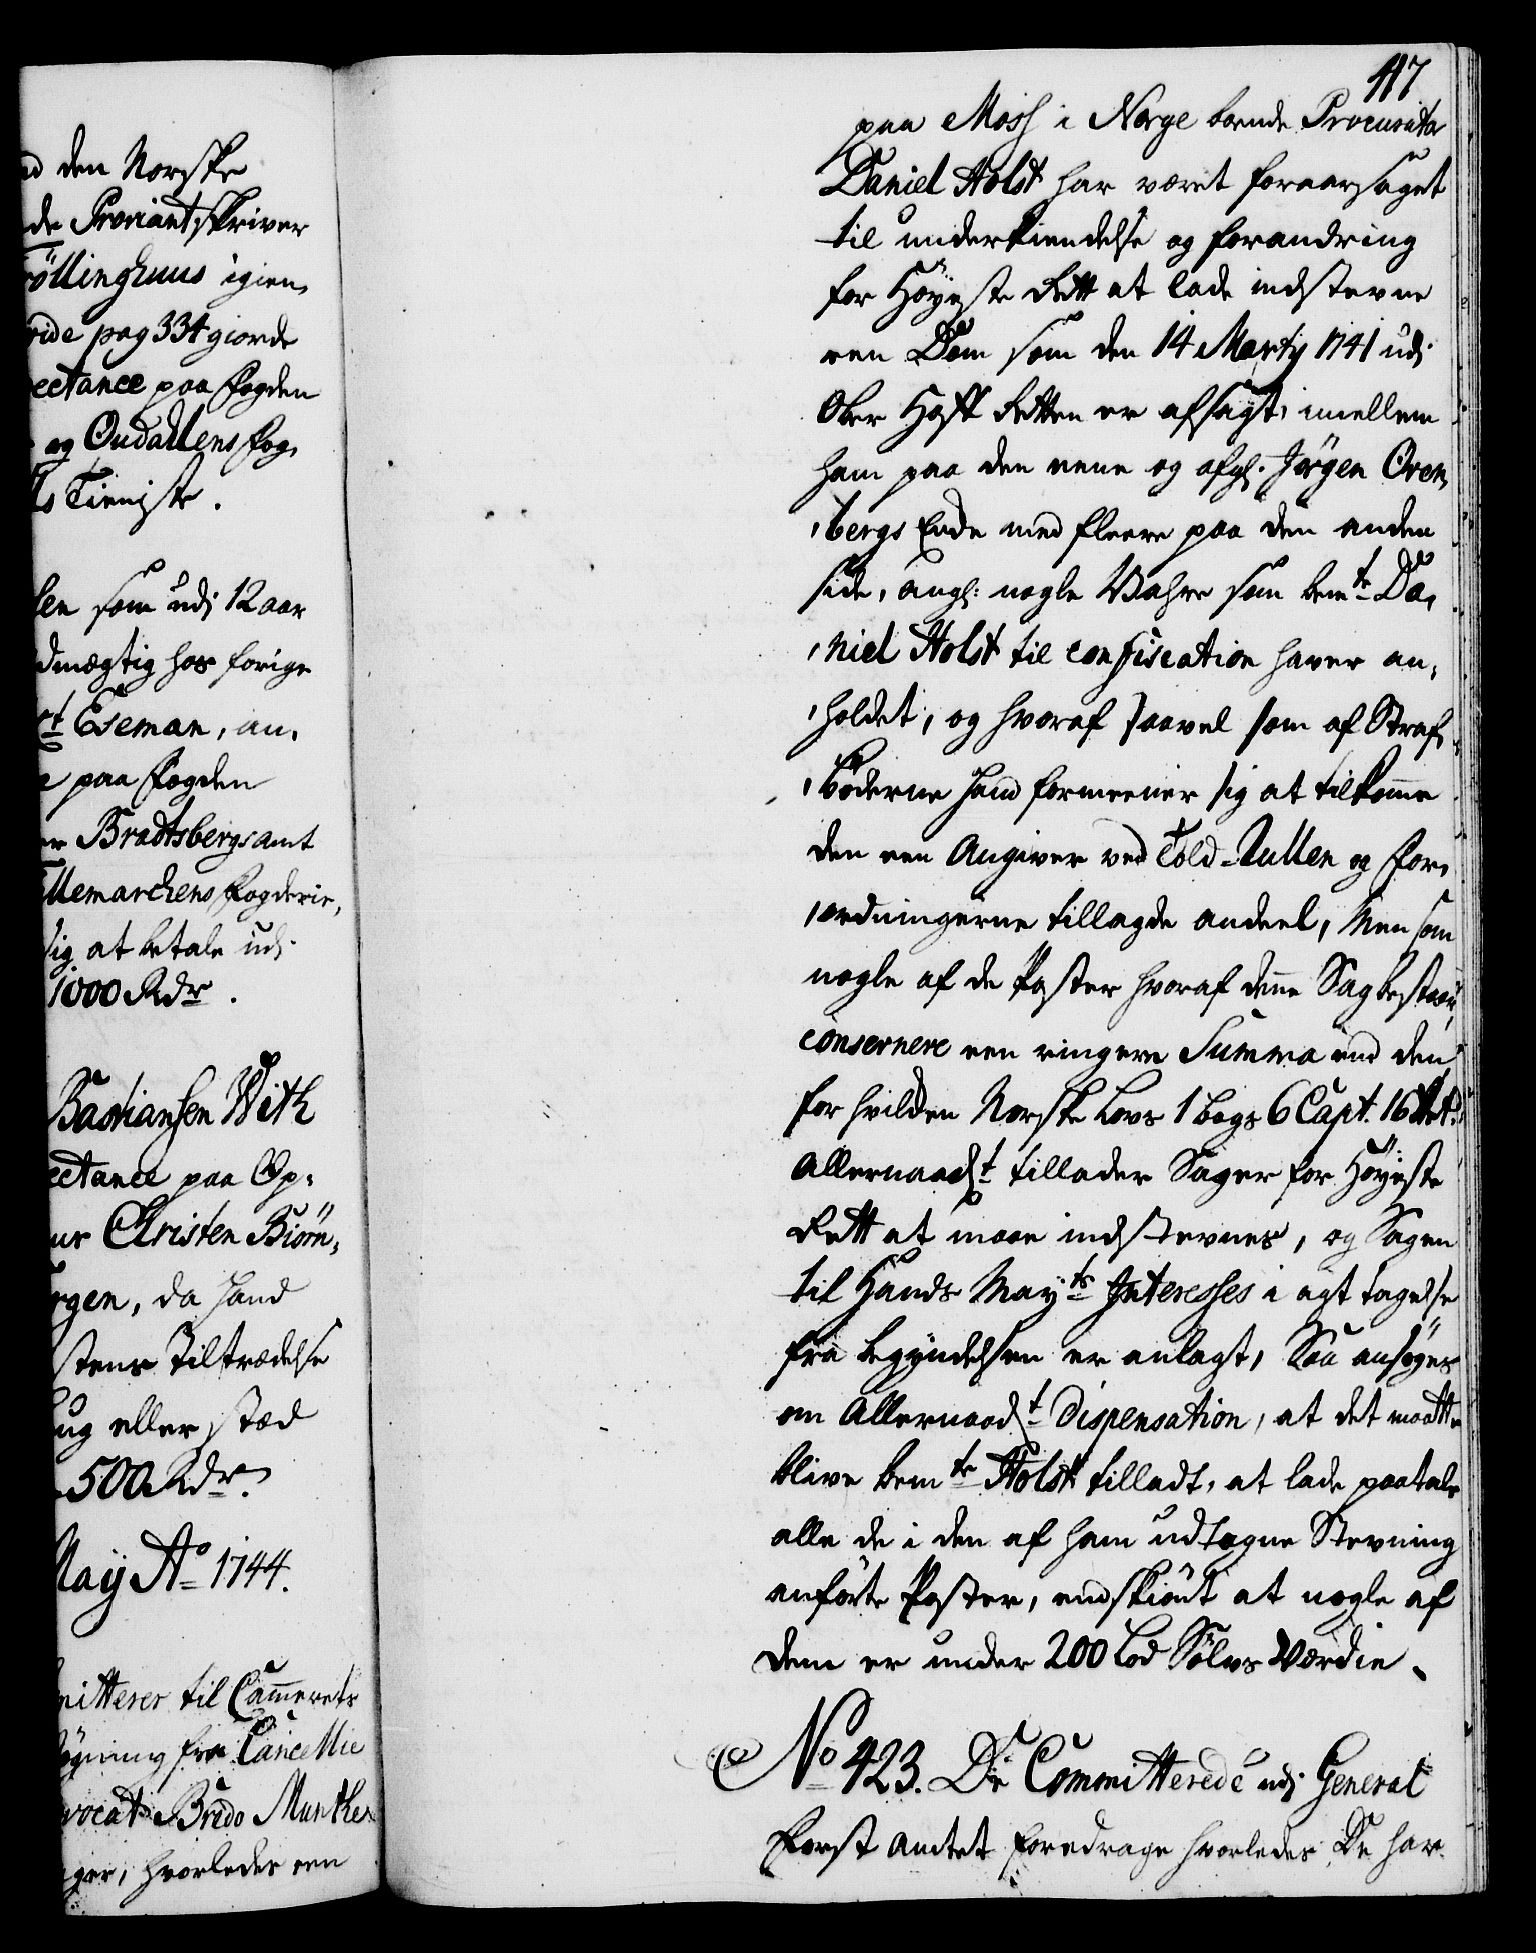 d den Norske
de Proviantskriver
röllinghuus igien,
ride pag 334 giorde
ectance paa Fogden
og Oudallens Fog,
ts Tieniste.
len som udj 12 aar
dmægtig hos forige
rt Eseman, an,
e paa Fogden
er Bradtsbergs amt
llemarckens Fogderie,
sig at betale udj
1000 Rdr.
Bastiansen With
ectance paa Op,
ur Christen Biörn,
rgen, da hand
stens Tiltrædelse
ug eller stæd
500 Rdr.
May Ao 1744.
mitterer til Cammerets
øgning fra Cancellie
vocat Bredo Munthe
ger, hvorledes een
417
paa Moss i Norge boende Procurator
Daniel Holst har været foraarsaget
til underkiendelse og forandring
for Höyeste Rett at lade indstevne
een Dom som den 14 Martij 1741 udj
Ober Hoff Retten er afsagt, imellem
ham paa den eene og afgl. Jørgen Oren,
,bergs Enke med fleere paa den anden
side, angl: nogle Vahre som bemte Da,
,niel Holst til confiscation haver an,
,holdet, og hvoraf saavel som af Straf,
,böderne hand formeener sig at tilkomme
den een Angiver ved Told-Rullen og For,
,ordningerne tillagde andeel, Men som
nogle af de Poster hvoraf denne Sag bestaar,
consernere een ringere Summa end den
for hvilken Norske Lovs 1 bogs 6 Capt. 16 Art:
Allernaadst tillader Sager for Höyeste
Rett at maae indstevnes, og Sagen
til Hands Mayts Interesses i agt tagelse
fra begyndelsen er anlagt, Saa ansöges
om Allernaadst Dispensation, at det maatte
blive bemte Holst tilladt, at lade paatale
alle de i den af ham udtagne Stevning
anförte Poster, endskiönt at nogle af
dem er under 200 Lod Sölvs Værdie.
No 423. De Committerede udj General
Forst Amtet foredrage hvorledes De har